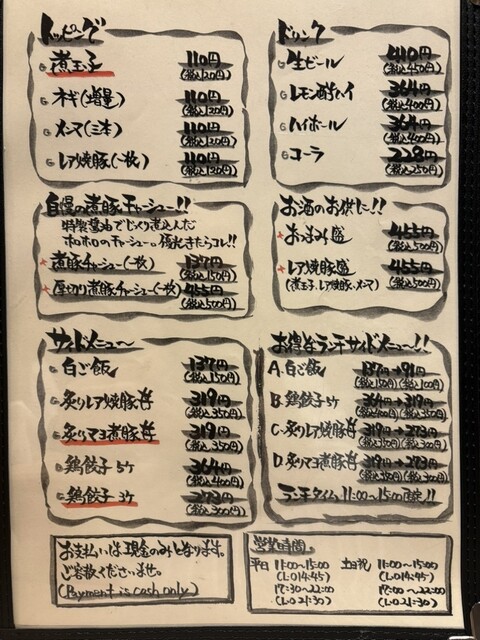 トッピング
煮玉子 110円
(税込120円)
ネギ(増量) 110円
(税込120円)
メンマ(三本) 110円
(税込120円)
レア焼豚(一枚) 110円
(税込120円)
ドリンク
生ビール 410円
(税込450円)
レモン酎ハイ 364円
(税込400円)
ハイボール 364円
(税込400円)
コーラ 228円
(税込250円)
自慢の煮豚チャーシュー!!
特製醤油でじっくり煮込んだ
ホロホロのチャーシュー。
煮豚チャーシュー(一枚) 137円
(税込150円)
厚切り煮豚チャーシュー(一枚) 455円
(税込500円)
お酒のお供に!!
おつまみ盛 455円
(税込500円)
レア焼豚盛 455円
(煮玉子、レア焼豚、メンマ) (税込500円)
サイドメニュー
白ご飯 137円
(税込150円)
炙りレア焼豚丼 319円
(税込350円)
炙りマヨ煮豚丼 319円
(税込350円)
鶏餃子 5ケ 364円
(税込400円)
鶏餃子 3ケ 273円
(税込300円)
お得なランチサイドメニュー!!
A.白ご飯 137円→91円
(税込150円)(税込100円)
B.鶏餃子5ケ 364円→319円
(税込400円)(税込350円)
C.炙りレア焼豚丼 319円→273円
(税込350円)(税込300円)
D.炙りマヨ煮豚丼 319円→273円
(税込350円)(税込300円)
ランチタイム 11:00〜15:00限定!!
お支払いは現金のみとなります。
ご容赦くださいませ。
(Payment is cash only)
営業時間
平日 11:00〜15:00
(L.O14:45)
17:30〜22:00
(L.O21:30)
土日祝 11:00〜15:00
(L.O14:45)
17:00〜22:00
(L.O21:30)